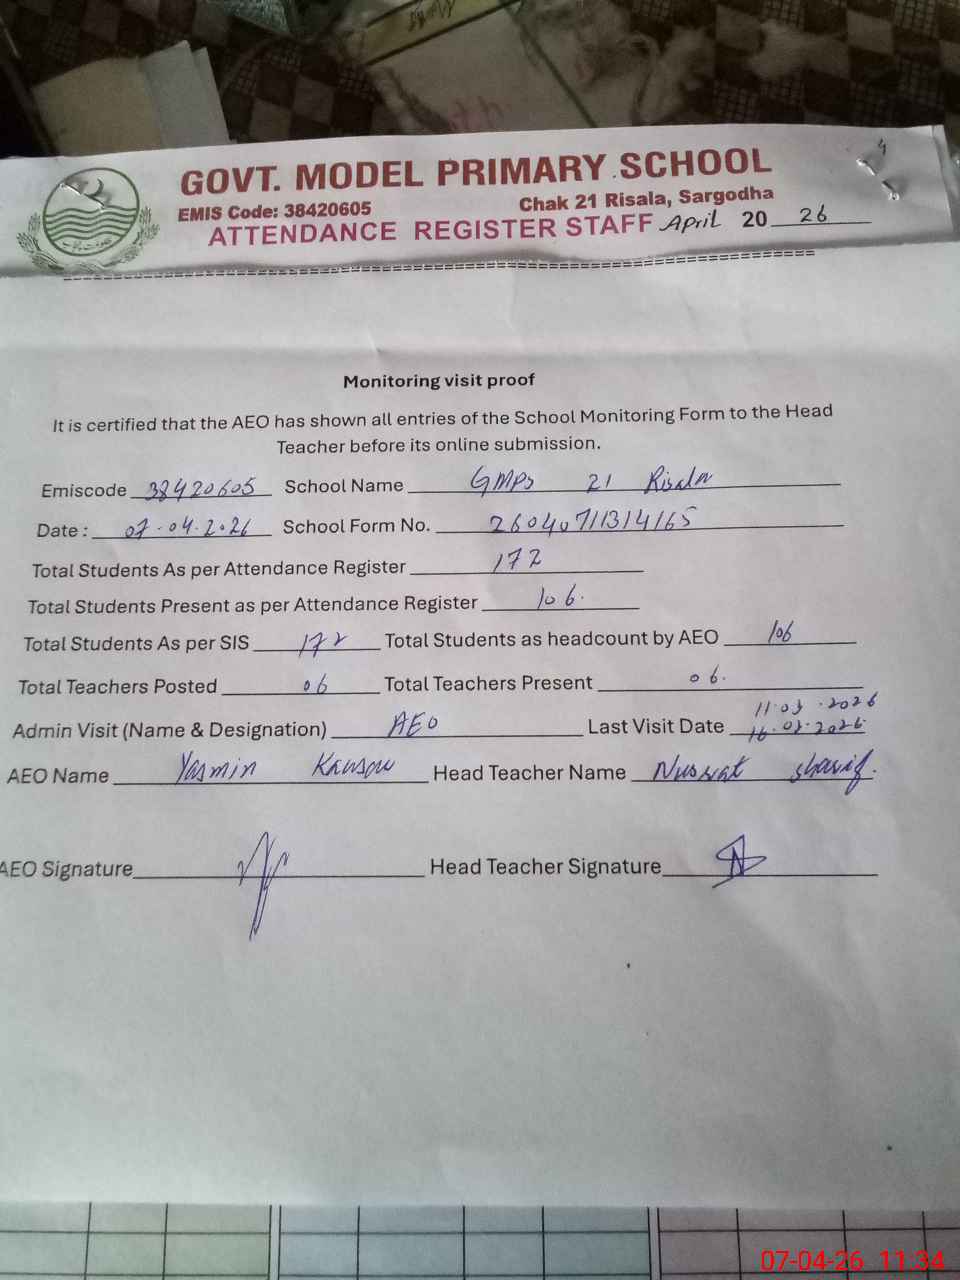 GOVT. MODEL PRIMARY SCHOOL
EMIS Code: 38420605 Chak 21 Risala, Sargodha
ATTENDANCE REGISTER STAFF April 2026
Monitoring visit proof
It is certified that the AEO has shown all entries of the School Monitoring Form to the Head
Teacher before its online submission.
Emiscode 38420605 School Name GMPS 21 Risala
Date : 07.04.2026 School Form No.
Total Students As per Attendance Register 172
Total Students Present as per Attendance Register 106.
Total Students As per SIS 172 Total Students as headcount by AEO 106
Total Teachers Posted 06 Total Teachers Present 06.
11.03.2026
Admin Visit (Name & Designation) AEO Last Visit Date 16.03.2026
AEO Name Yasmin Kausar Head Teacher Name Nusrat sharif.
AEO Signature Head Teacher Signature
07-04-26 11:34